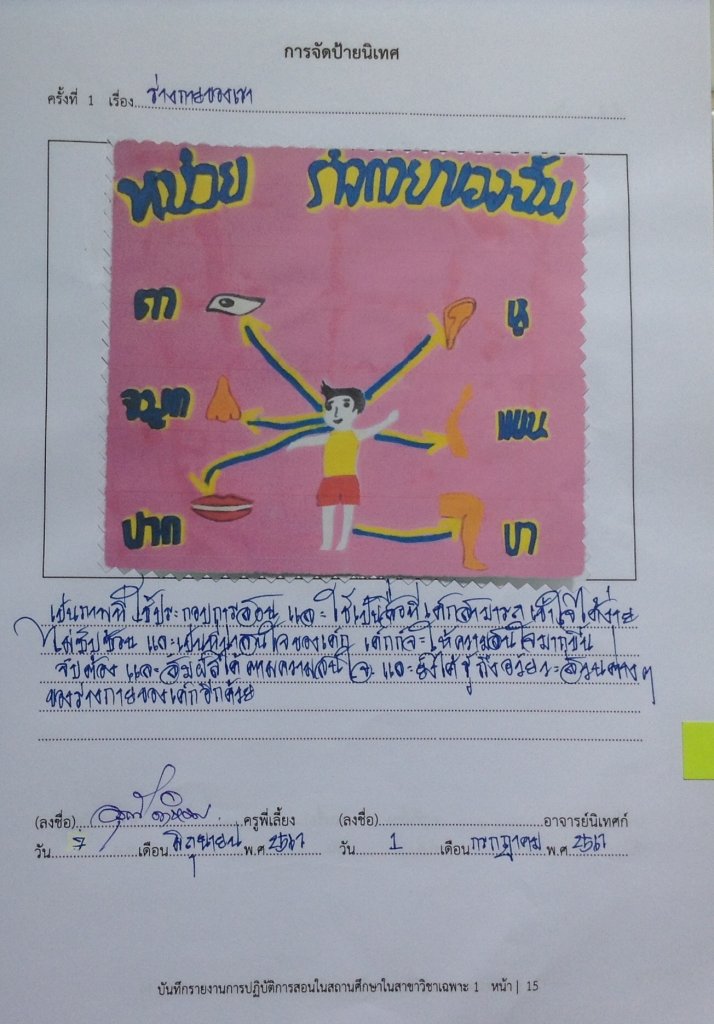 การจัดป้ายนิเทศ
ครั้งที่ 1 เรื่อง ร่างกายของเรา
หน่วย ร่างกายของฉัน
ตา หู
จมูก แขน
ปาก ขา
เป็นภาพที่ใช้ประกอบการสอน และใช้เป็นสื่อที่เด็กสามารถเข้าใจได้ง่าย
ไม่ซับซ้อน และเป็นที่น่าสนใจของเด็ก เด็กก็จะให้ความสนใจมากขึ้น
จับต้อง และสัมผัสได้ตามความสนใจ และยังได้รู้ถึงอวัยวะส่วนต่างๆ
ของร่างกายของเด็กอีกด้วย
(ลงชื่อ) ครูพี่เลี้ยง (ลงชื่อ) อาจารย์นิเทศก์
วัน 7 เดือน มิถุนายน พ.ศ วัน 1 เดือน กรกฎาคม พ.ศ
บันทึกรายงานการปฏิบัติการสอนในสถานศึกษาในสาขาวิชาเฉพาะ 1 หน้า | 15